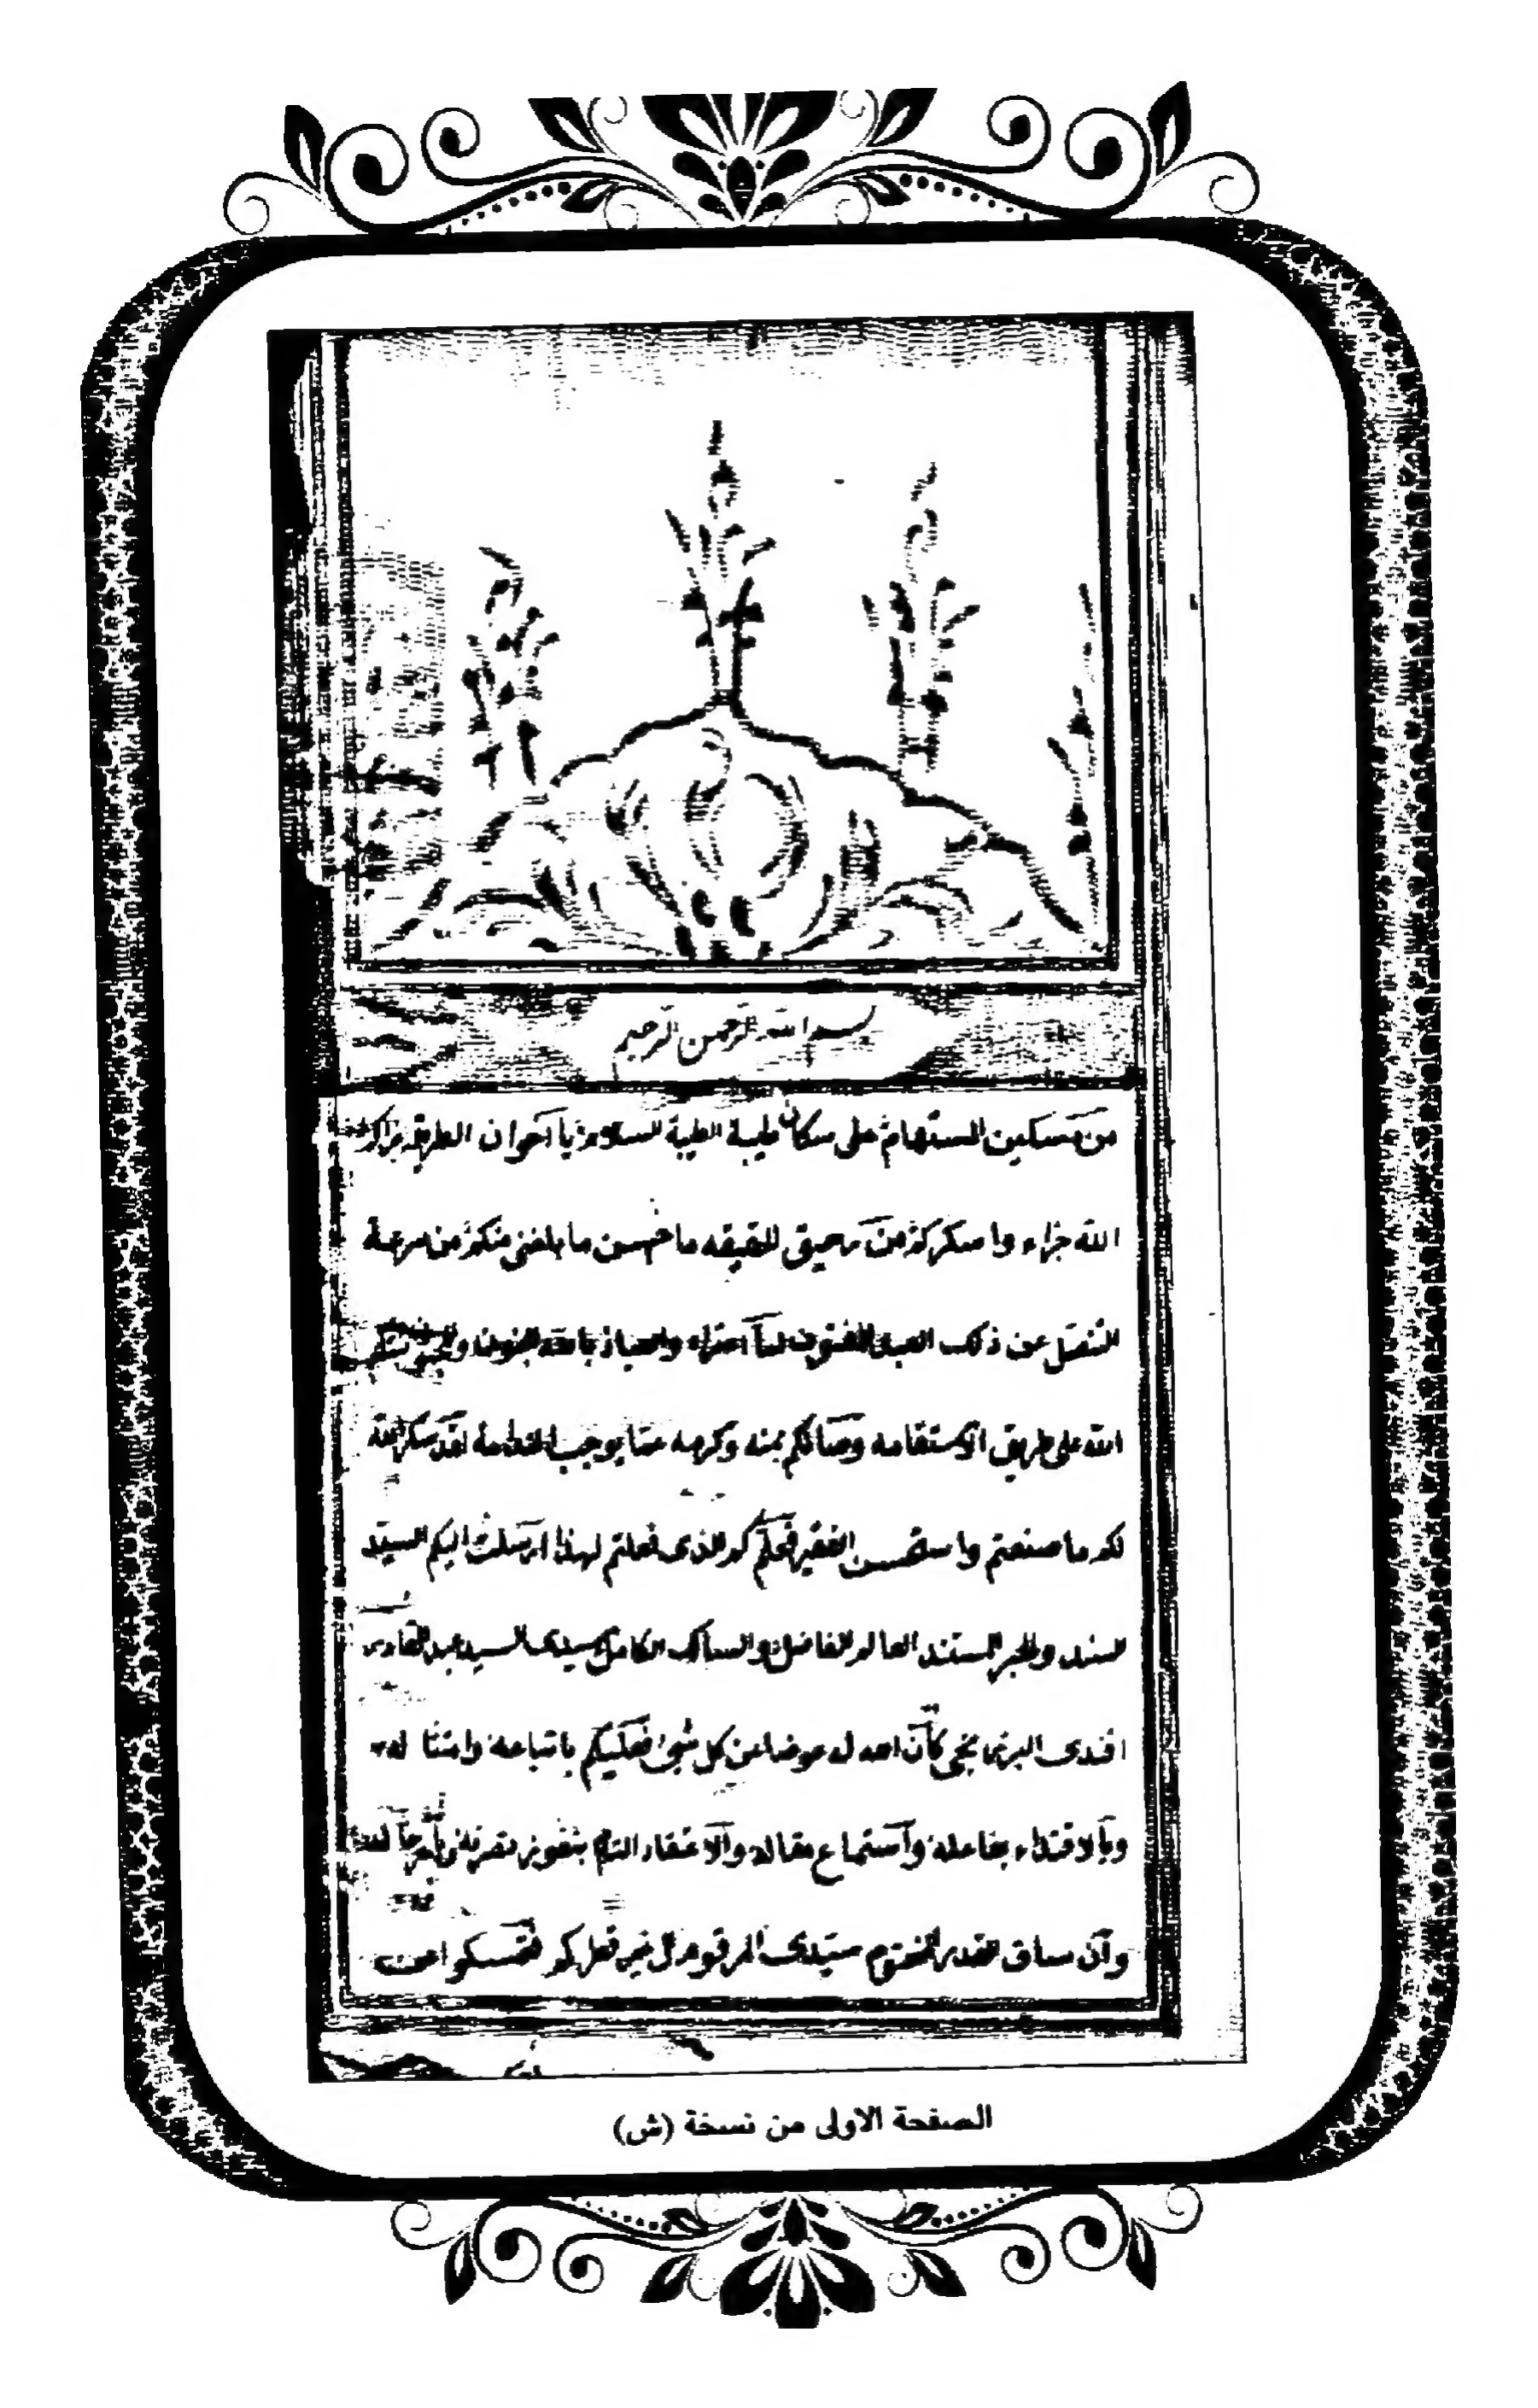 بسم الله الرحمن الرحيم
من مسكين المستهام على سكان طيبة الطيبة السلام يا اخوان الطريقه جزاكم
الله جزاء واسكركم من رحيق الحقيقه ما احسن ما بلغنى منكم من سرعة
التنصل عن ذلك العبد المفتون لما اعتراه والعياذ بالله الجنون
الله على طريق الاستقامه وصانكم بمنه وكرمه عما يوجب الندامة لقد شكر الله
لكم ما صنعتم واستحسن الفقير فعلكم الذى فعلتم لهذا ارسلت اليكم السيد
السند والحبر المستند العالم الفاضل والسالك الكامل سيدى السيد عبد القادر
افندى البرزنجى كأن الله له عوضا عن كل شئ فعليكم باتباعه وامتثاله
وبالاقتداء بفاعله وأستماع مقاله والاعتقاد التام
وأن ساق القدر المختوم سيدى المرقوم ل فتمسكوا عن
الصفحة الاولى من نسخة (ش)